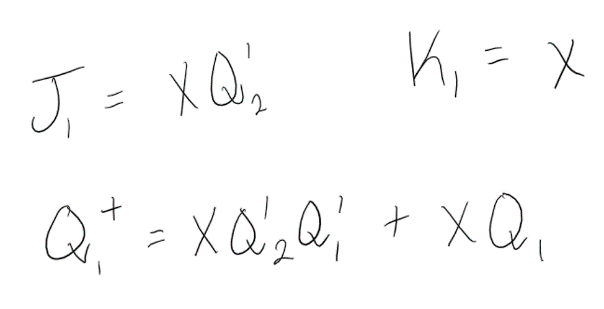 J₁ = XQ₂' K₁ = X
Q₁⁺ = XQ₂'Q₁' + XQ₁